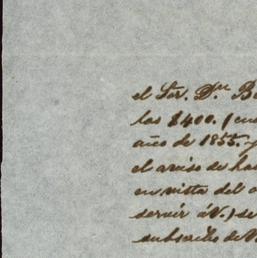 el Sor. Dn. B
las $400. (cua
año de 1855. y
el aviso de ha
en vista del
servir á V.) se
subscribo de V.